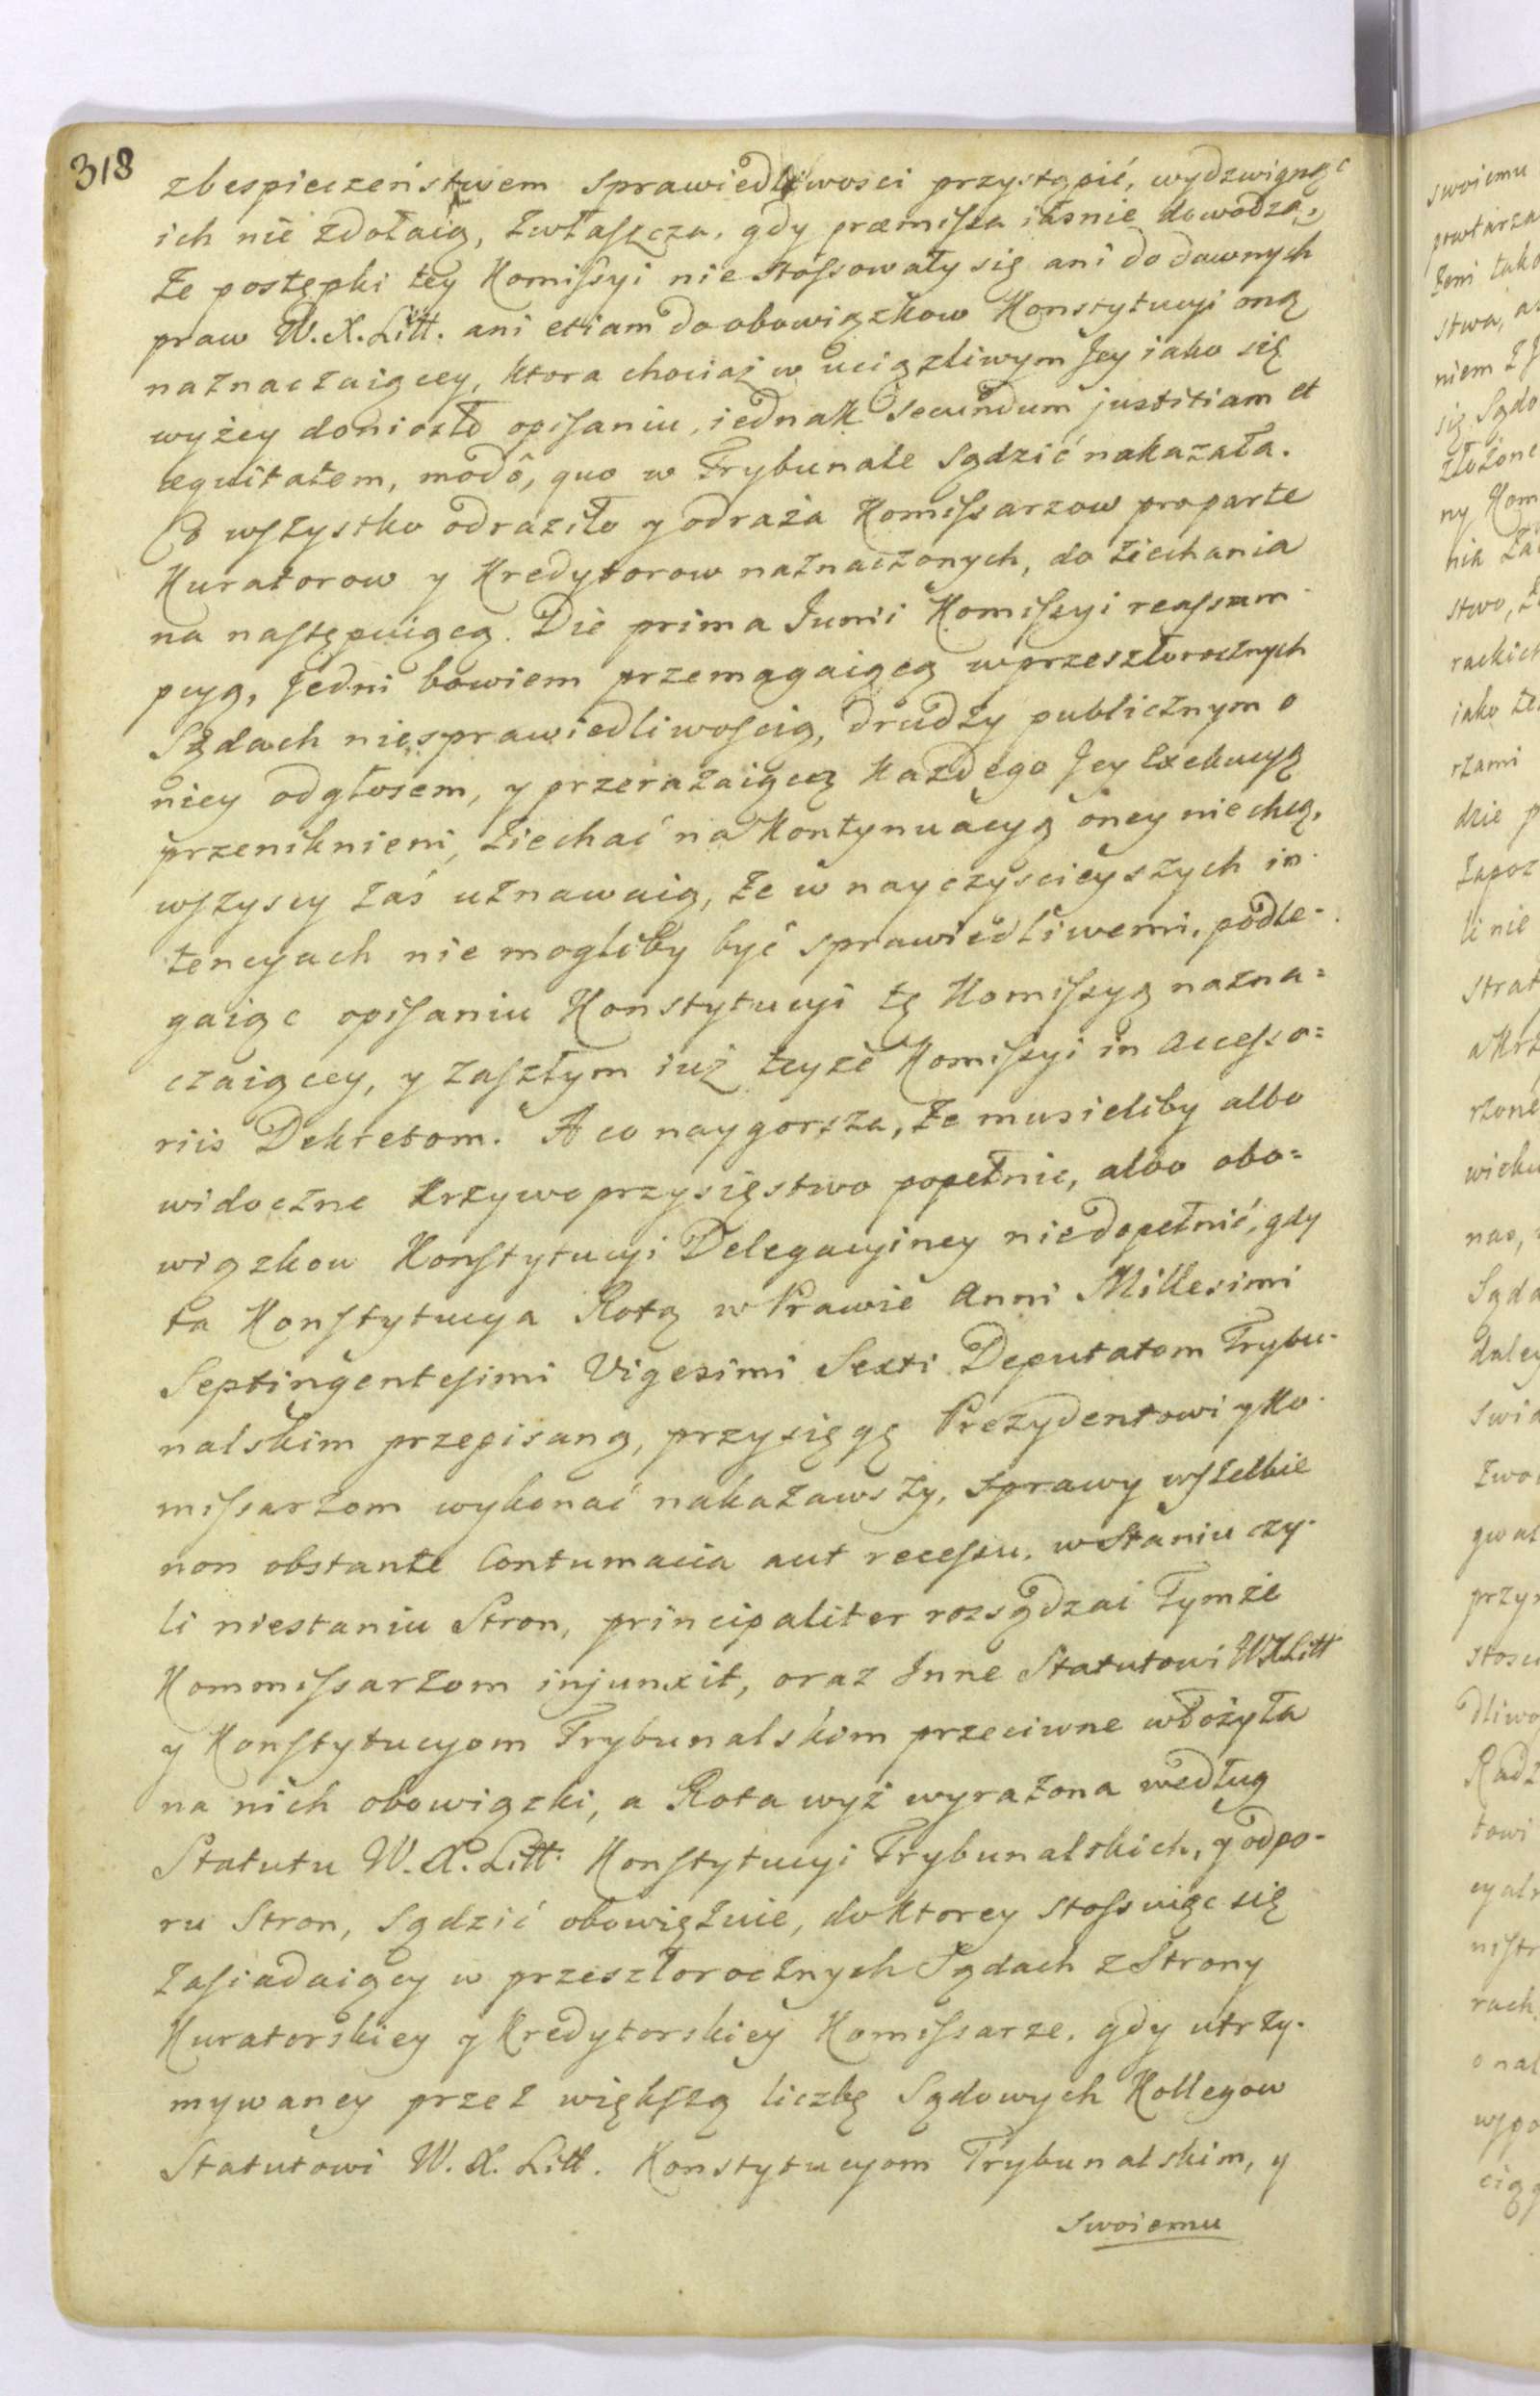 318
zbespieczeństwem sprawiedliwosci przystąpić, wydzwignąć
ich nie zdołaią, zwłaszcza, gdy præmissa iasnie dowodzą,
że postępki tey Komissyi nie stossowały się ani do dawnych
praw W. X. Litt. ani etiam do obowiązkow Konstytucyi oną
naznaczaiącey, ktora chociaż w uciążliwym Jey iako się
wyżey doniosło opisaniu, iednak secundum justitiam et
æquitatem, modô, quo w Trybunale sądzić nakazała.
Co wszystko odraziło y odraża Komissarzow pro parte
Kuratorow y Kredytorow naznaczonych, do ziechania
na następuiącą. Die prima Junii Komissyi reassum-
pcyą, Jedni bowiem przemagaiącą w przeszłorocznych
Sądach niesprawiedliwością, drudzy publicznym o
niey odgłosem, y przerażaiącą każdego Jey Exekucyą
przeniknieni, ziechać na kontynuacyą oney nie chcą,
wszyscy zaś uznawaią, że w nayczyscieyszych in-
tencyach nie mogliby być sprawiedliwemi, podle-
gaiąc opisaniu Konstytucyi tę Komissyą nazna=
czaiącey, y zaszłym iuż teyże Komissyi in accesso=
riis Dekretom. A co naygorsza, że musieliby albo
widoczne krzywoprzysięstwo popełnic, albo obo=
wiązkow Konstytucyi Delegacyiney niedopełnić, gdy
ta Konstytucya Rotą w Prawie Anni Millesimi
Septingentesimi Vigesimi Sexti Deputatom Trybu-
nalskim przepisaną, przysięgę Prezydentowi y Ko-
missarzom wykonać nakazawszy, sprawy wszelkie
non obstante Contumacia aut recessu, w staniu czy-
li niestaniu Stron, principaliter rozsądzai Tymże
Kommissarzom injunxit, oraz Inne Statutowi WXLitt
y Konstytucyom Trybunalskim przeciwne włożyła
na nich obowiązki, a Rota wyż wyrażona według
Statutu W. X. Litt. Konstytucyi Trybunalskich, y odpo-
ru Stron, sądzić obowiązuie, do ktorey stossuiąc się
zasiadaiący w przeszłorocznych Sądach z Strony
Kuratorskiey y Kredytorskiey Komissarze, gdy utrzy-
mywaney przez większą liczbę Sądowych Kollegow
Statutowi W. X. Litt. Konstytucyom Trybunalskim, y
swoiemu